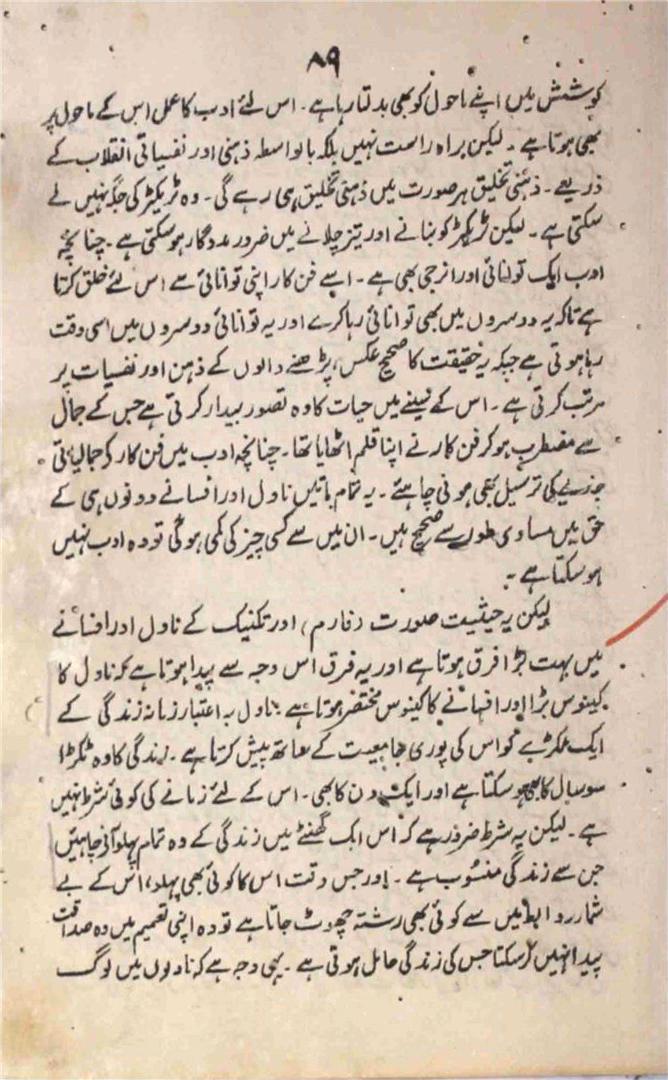 ۸۹
کوشش میں اپنے ماحول کو بھی بدلتا رہا ہے۔ اس لئے ادب کا عمل اس کے ماحول پر
بھی ہوتا ہے۔ لیکن براہ راست نہیں بلکہ بالواسطہ ذہنی اور نفسیاتی انقلاب کے
ذریعے۔ ذہنی تخلیق ہر صورت میں ذہنی تخلیق ہی رہے گی۔ وہ ٹریکٹر کی جگہ نہیں لے
سکتی ہے۔ لیکن ٹریکٹر کو بنانے اور تیز چلانے میں ضرور مددگار ہو سکتی ہے۔ چنانچہ
ادب ایک توانائی اور انرجی بھی ہے۔ اسے فن کار اپنی توانائی سے اس لئے خلق کرتا
ہے تاکہ یہ دوسروں میں بھی توانائی رہا کرے اور یہ توانائی دوسروں میں اسی وقت
رہا ہوتی ہے جبکہ یہ حقیقت کا صحیح عکس، پڑھنے والوں کے ذہن اور نفسیات پر
مرتب کرتی ہے۔ اس کے سینے میں حیات کا وہ تصور بیدار کرتی ہے جس کے جمال
سے مضطرب ہو کر فن کار نے اپنا قلم اٹھایا تھا۔ چنانچہ ادب میں فن کار کے جمالیاتی
جذبے کی ترسیل بھی ہونی چاہئے۔ یہ تمام باتیں ناول اور افسانے دونوں ہی کے
حق میں مساوی طور سے صحیح ہیں۔ ان میں سے کسی چیز کی کمی ہوگی تو وہ ادب نہیں
ہو سکتا ہے۔
لیکن بہ حیثیت صورت (فارم) اور تکنیک کے ناول اور افسانے
میں بہت بڑا فرق ہوتا ہے اور یہ فرق اس وجہ سے پیدا ہوتا ہے کہ ناول کا
کینوس بڑا اور افسانے کا کینوس مختصر ہوتا ہے۔ ناول بہ اعتبار زمانہ زندگی کے
ایک ٹکڑے کو اس کی پوری جامعیت کے ساتھ پیش کرتا ہے۔ زندگی کا وہ ٹکڑا
سو سال کا بھی ہو سکتا ہے اور ایک دن کا بھی۔ اس کے لئے زمانے کی کوئی شرط نہیں
ہے۔ لیکن یہ شرط ضرور ہے کہ اس ایک گھنٹے میں زندگی کے وہ تمام پہلو آنے چاہئیں
جن سے زندگی منسوب ہے۔ اور جس وقت اس کا کوئی بھی پہلو، اس کے بے
شمار روابط میں سے کوئی بھی رشتہ چھوٹ جاتا ہے تو وہ اپنی تعمیم میں وہ صداقت
پیدا نہیں کر سکتا جس کی زندگی حامل ہوتی ہے۔ یہی وجہ ہے کہ ناولوں میں لوگ